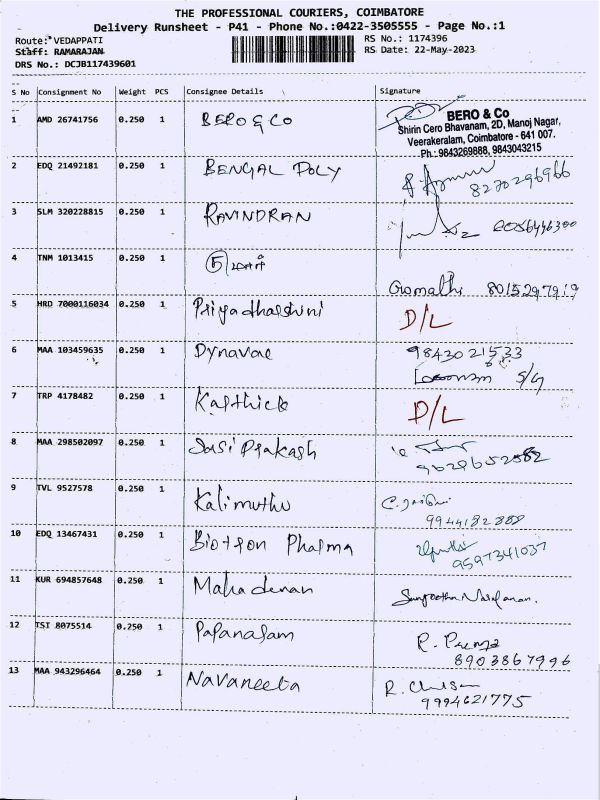 THE PROFESSIONAL COURIERS, COIMBATORE
Delivery Runsheet - P41 - Phone No.:0422-3505555 - Page No.:1
Route: VEDAPPATI RS No.: 1174396
Staff: RAMARAJAN RS Date: 22-May-2023
DRS No.: DCJB117439601
S No Consignment No Weight PCS Consignee Details Signature
1 AMD 26741756 0.250 1 BERO & CO
BERO & Co
Shirin Cero Bhavanam, 2D, Manoj Nagar,
Veerakeralam, Coimbatore - 641 007.
Ph : 9843269888, 9843043215
2 EDQ 21492181 0.250 1 BENGAL POLY
8270296966
3 SLM 320228815 0.250 1 RAVINDRAN
4 TNM 1013415 0.250 1
Gomathi 8015297919
5 HRD 7000116034 0.250 1 Priyadharshini D/L
6 MAA 103459635 0.250 1 Dynavac 9843021533
7 TRP 4178482 0.250 1 Karthick D/L
8 MAA 298502097 0.250 1 Sasi Prakash
9629652582
9 TVL 9527578 0.250 1 Kalimuthu
9944182888
10 EDQ 13467431 0.250 1 Biotron Pharma
9597341037
11 KUR 694857648 0.250 1 Mahadevan
12 TSI 8075514 0.250 1 Papanasam R. Prema
8903867996
13 MAA 943296464 0.250 1 Navaneeta
9994621775